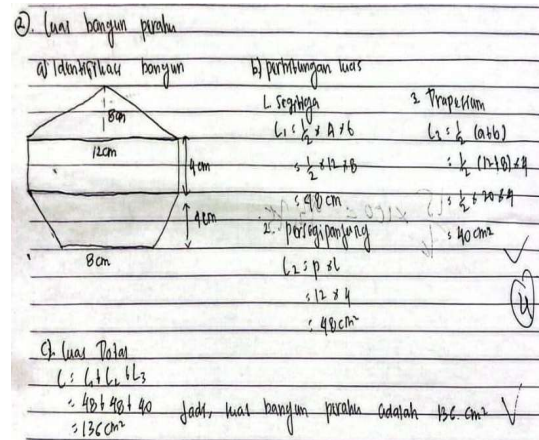 ②. Luas bangun perahu
a) Identifikasi bangun
8cm
12cm
4cm
4cm
8cm
b) perhitungan luas
1. Segitiga
L₁ = ½ × A × t
= ½ × 12 × 8
= 48 cm
2. persegi panjang
L₂ = p × l
= 12 × 4
= 48 cm²
3. Trapesium
L₃ = ½ (a+b)
= ½ (12+8) × 4
= ½ × 20 × 4
= 40 cm²
4
c). Luas Total
L = L₁ + L₂ + L₃
= 48 + 48 + 40
= 136 cm²
Jadi, luas bangun perahu adalah 136 cm²